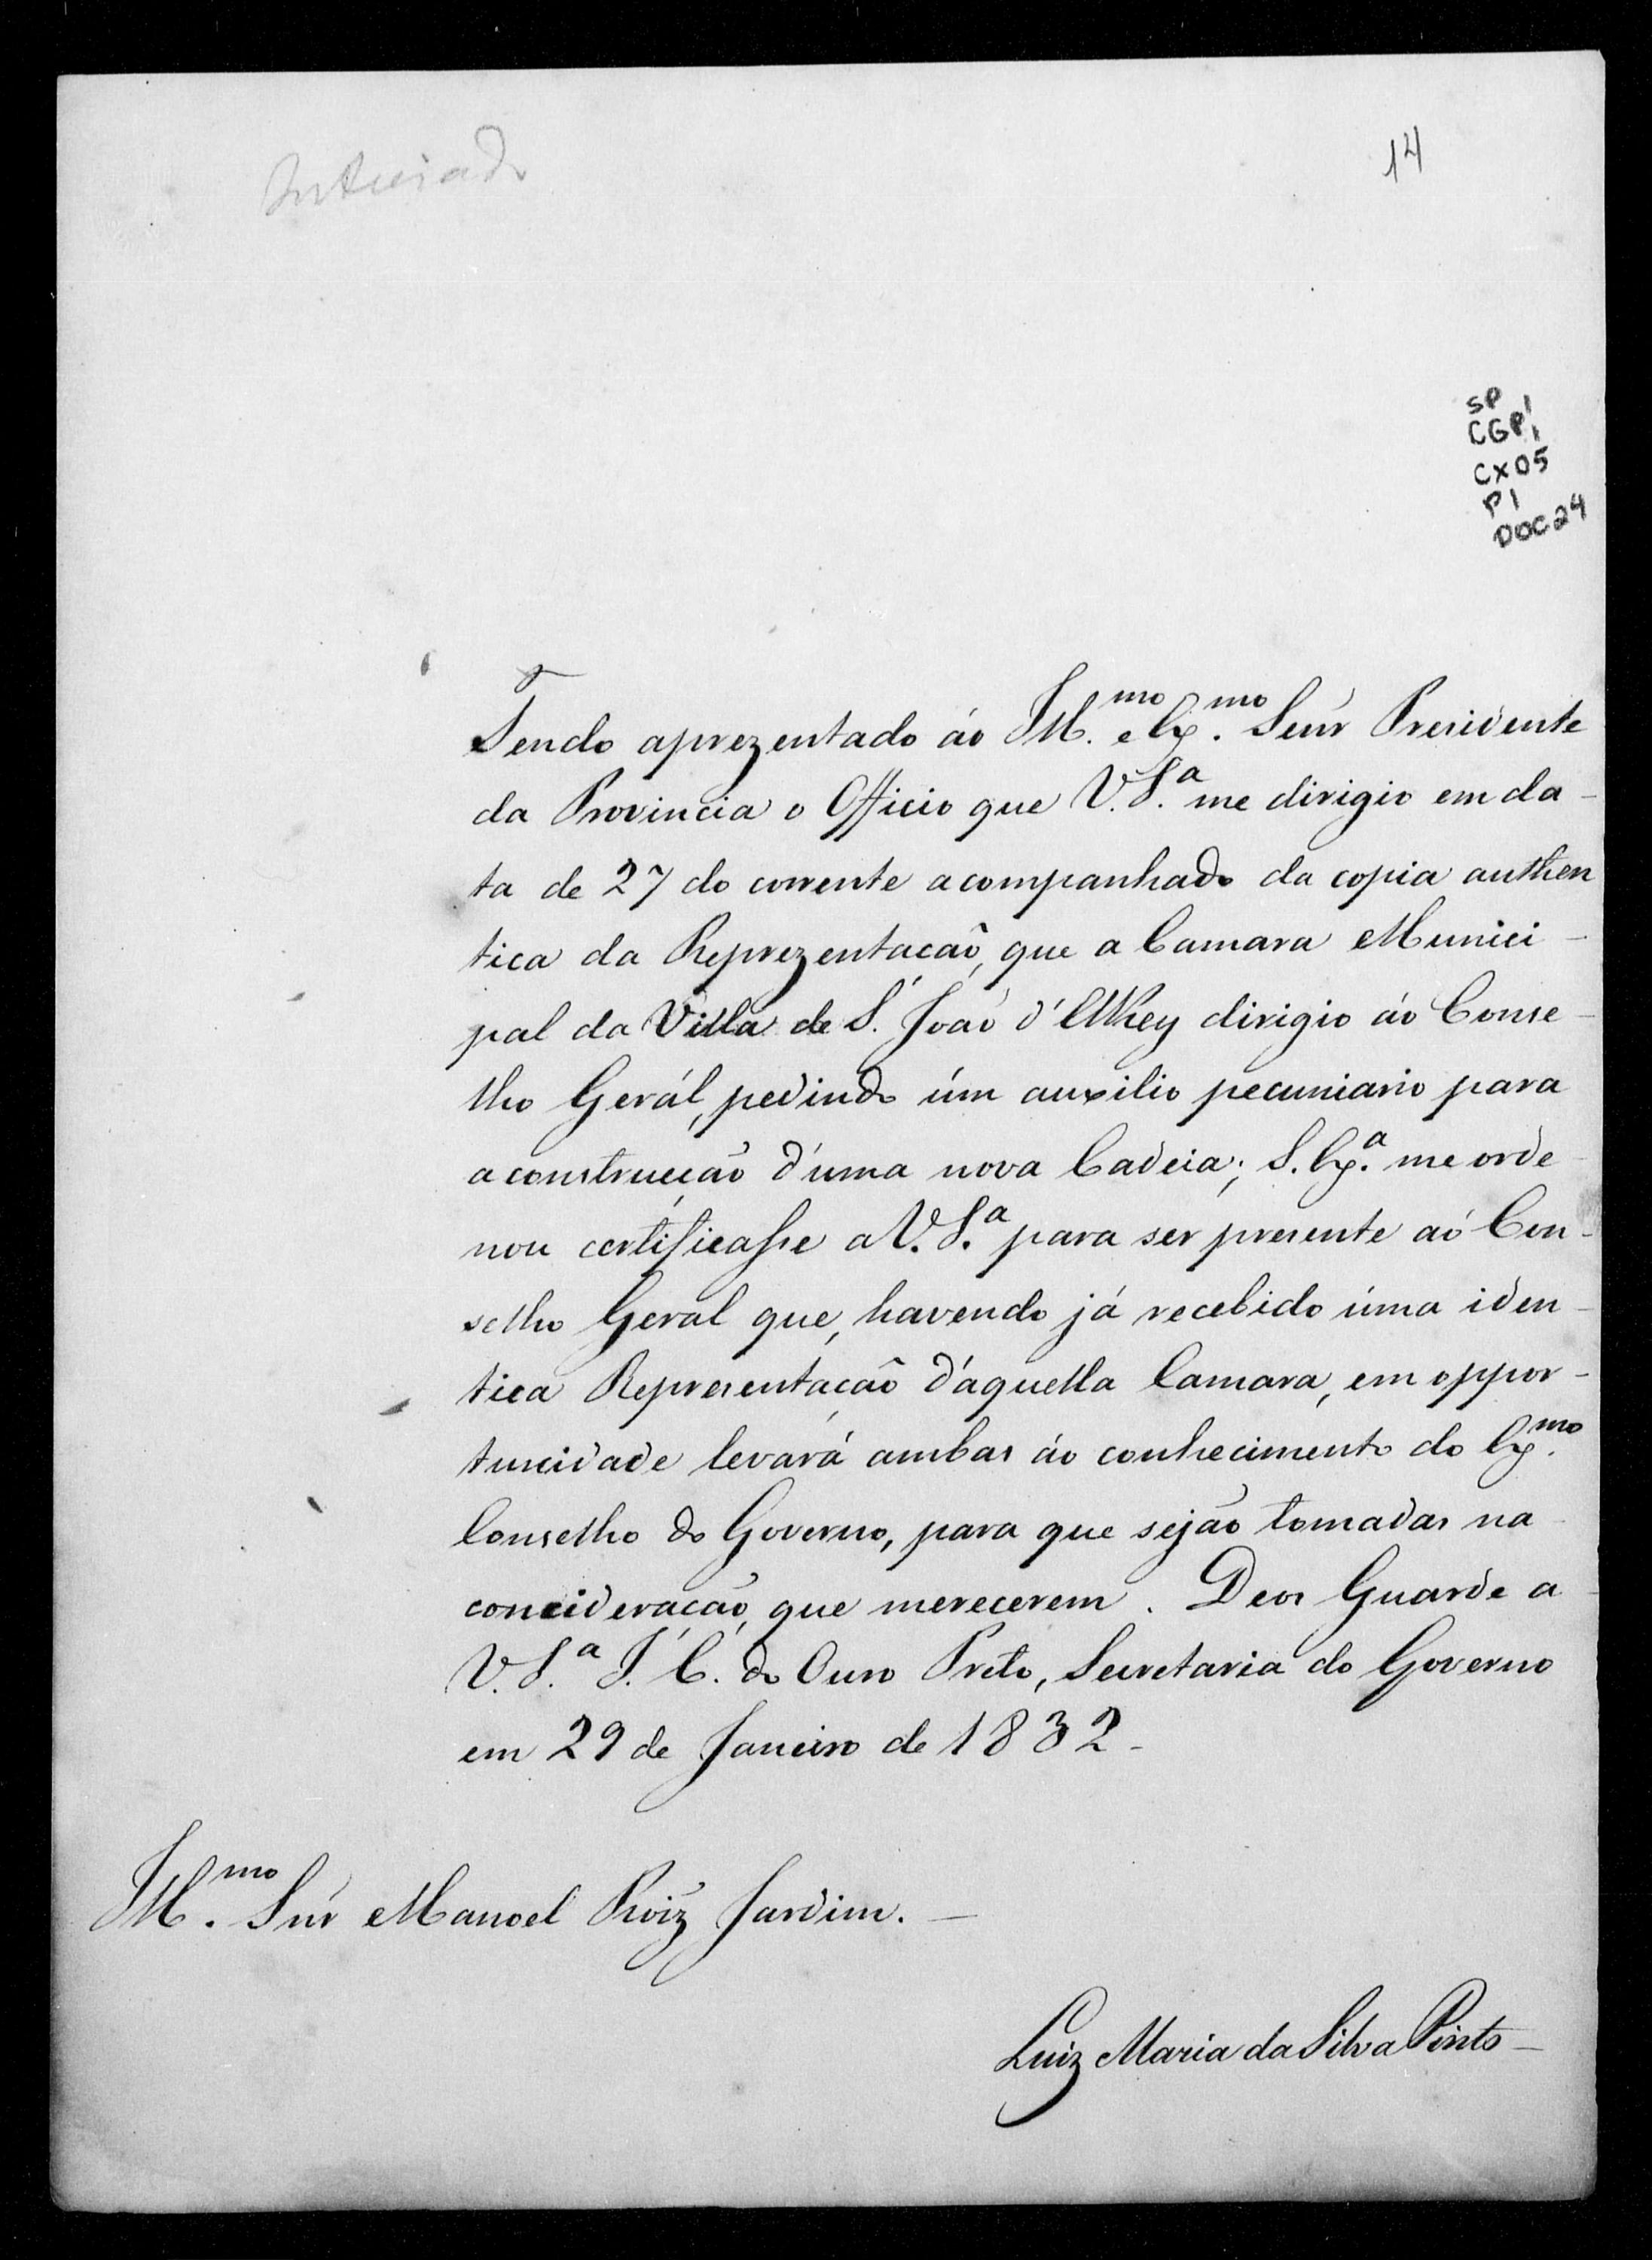 Inteirado
14
SP
CGP1
CX05
P1
DOC24
Tendo aprezentado áo Ill.mo e Ex.mo Senr Presidente
da Provincia o Officio que V. S.a me dirigio em da-
ta de 27 do corrente acompanhado da copia authen
tica da Reprezentacaõ, que a Camara Munici-
pal da Villa de S. Joaõ d'ElRey dirigio áo Conse-
lho Gerál, pedindo úm auxilio pecuniario para
a construcçaõ d'uma nova Cadeia; S. Ex.a me orde-
nou certificasse a V. S.a para ser presente aó Con-
selho Geral que, havendo já recebido úma iden-
tica Representaçaõ d'áquella Camara, em oppor-
tunidade levará ambas áo conhecimento do Ex.mo
Conselho do Governo, para que sejaõ tomadas na
concideraçaõ, que merecerem. Deos Guarde a
V. S.a I. C. do Ouro Preto, Secretaria do Governo
em 29 de Janeiro de 1832-
Ill.mo Snr Manoel Roiz Jardim.-
Luiz Maria da Silva Pinto-